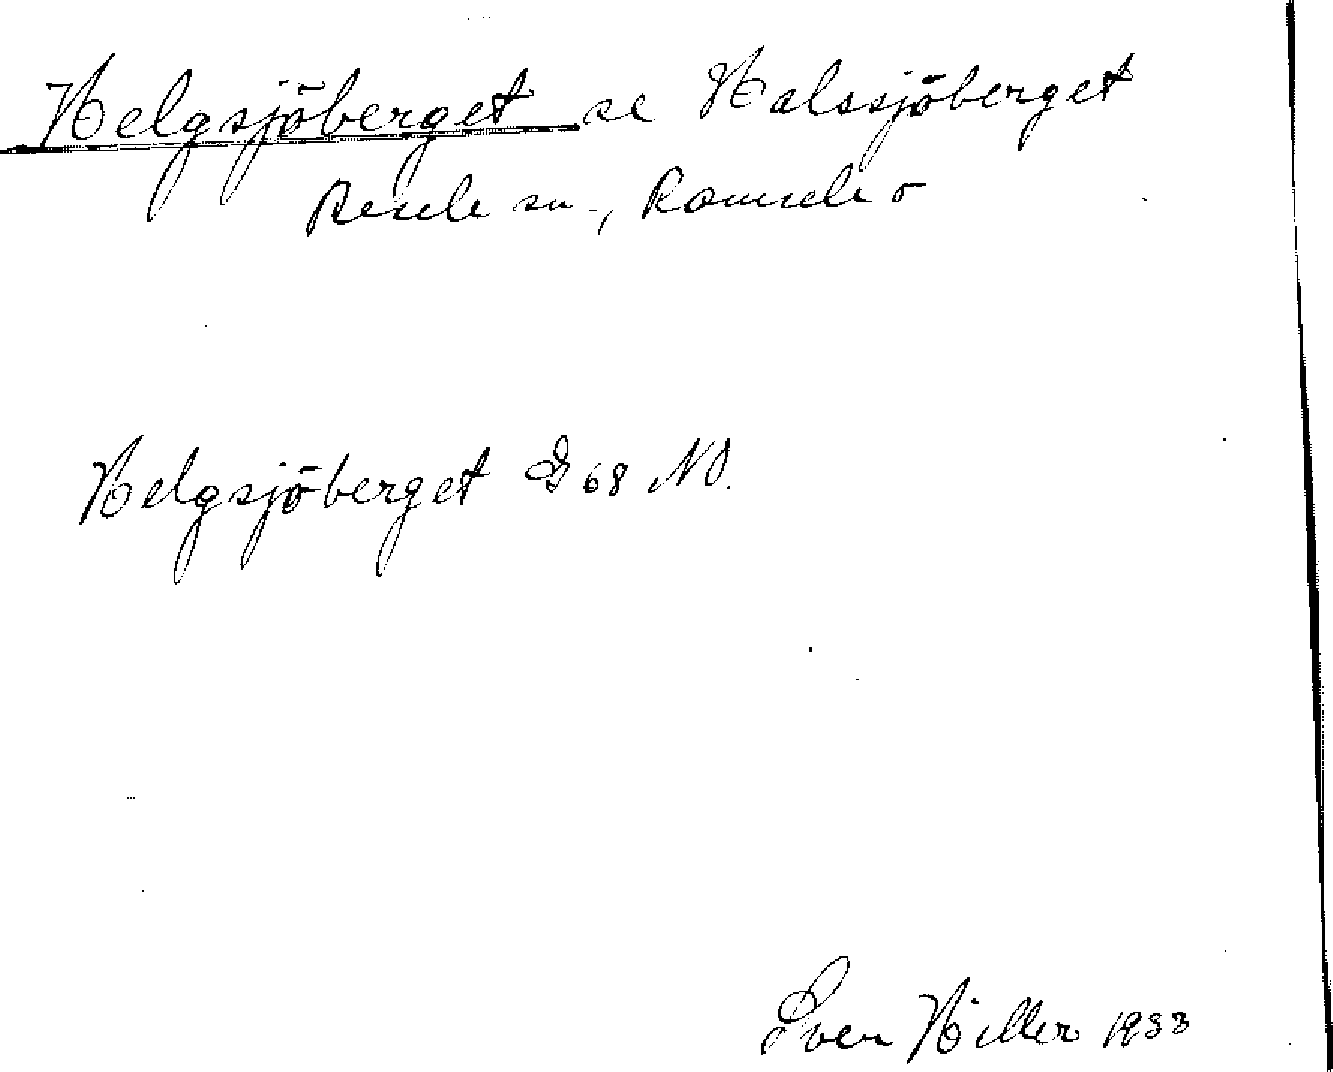 Helgsjöberget se Halssjöberget
Resele sn., Ramsele
Helgsjöberget G 68 NO.
Sven Hiller 1933